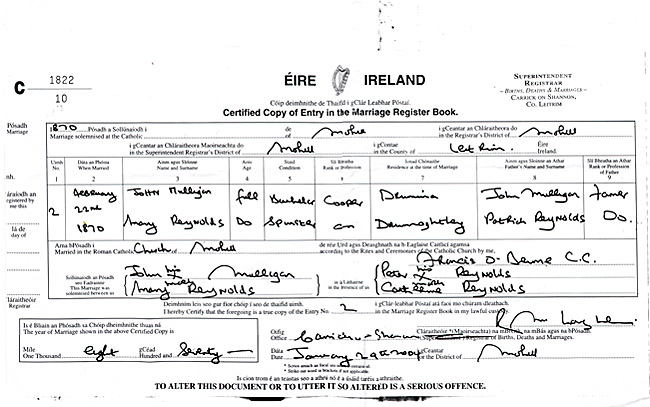 C 1822
10
ÉIRE IRELAND
SUPERINTENDENT
REGISTRAR
- BIRTHS, DEATHS & MARRIAGES -
CARRICK ON SHANNON,
CO. LEITRIM
Cóip deimhnithe de Thaifid i gClár Leabhar Póstaí.
Certified Copy of Entry in the Marriage Register Book.
Pósadh
Marriage
1870 Pósadh a Sollúnaíodh i de i gCeantar an Chláraitheora do
Marriage solemnised at the Catholic of Mohill in the Registrar's District of Mohill
i gCeantar an Chláraitheora Maoirseachta do i gContae Éire
in the Superintendent Registrar's District of Mohill in the County of Leitrim Ireland.
Uimh No. 1
Dáta an Phósta When Married 2
Ainm agus Sloinne Name and Surname 3
Aois Age 4
Staid Condition 5
Slí Bheatha Rank or Profession 6
Ionad Cónaithe Residence at the time of Marriage 7
Ainm agus Sloinne an Athar Father's Name and Surname 8
Slí Bheatha an Athar Rank or Profession of Father 9
2 February 22nd 1870
John Mulligan full Bachelor Cooper John Mulligan farmer
Mary Reynolds Do Spinster Patrick Reynolds Do.
Arna bPósadh i de réir Urd agus Deasghnáth na bEaglaise Caitlicí agamsa
Married in the Roman Catholic Church of Mohill according to the Rites and Ceremonies of the Catholic Church by me,
C.C.
Sollúnaíodh an Pósadh seo Eadrainne
This Marriage was solemnized between us
John his Mulligan
Mary Reynolds
i Láthairne
in the Presence of us
Peter his Reynolds
Catherine Reynolds
Deimhním leis seo gur fíor chóip í seo de thaifid uimh. i gLeabhar Póstaí atá faoi mo chúram dleathach.
I hereby Certify that the foregoing is a true copy of the Entry No. 2 in the Marriage Register Book in my lawful custody.
Is é Bliain an Phósta sa Chóip deimhnithe thuas ná
The year of Marriage shown in the above Certified Copy is
Míle gCéad
One Thousand eight Hundred and Seventy
Oifig
Office Carrick on Shannon
Cláraitheoir *(Maoirseachta) na mBreith, na mBás agus na bPósadh.
Registrar of Births, Deaths and Marriages.
Dáta
Date January
gCeantar
for the District of Mohill
Is cion trom é an teastas seo a athrú nó é a úsáid tar éis a athraithe.
TO ALTER THIS DOCUMENT OR TO UTTER IT SO ALTERED IS A SERIOUS OFFENCE.